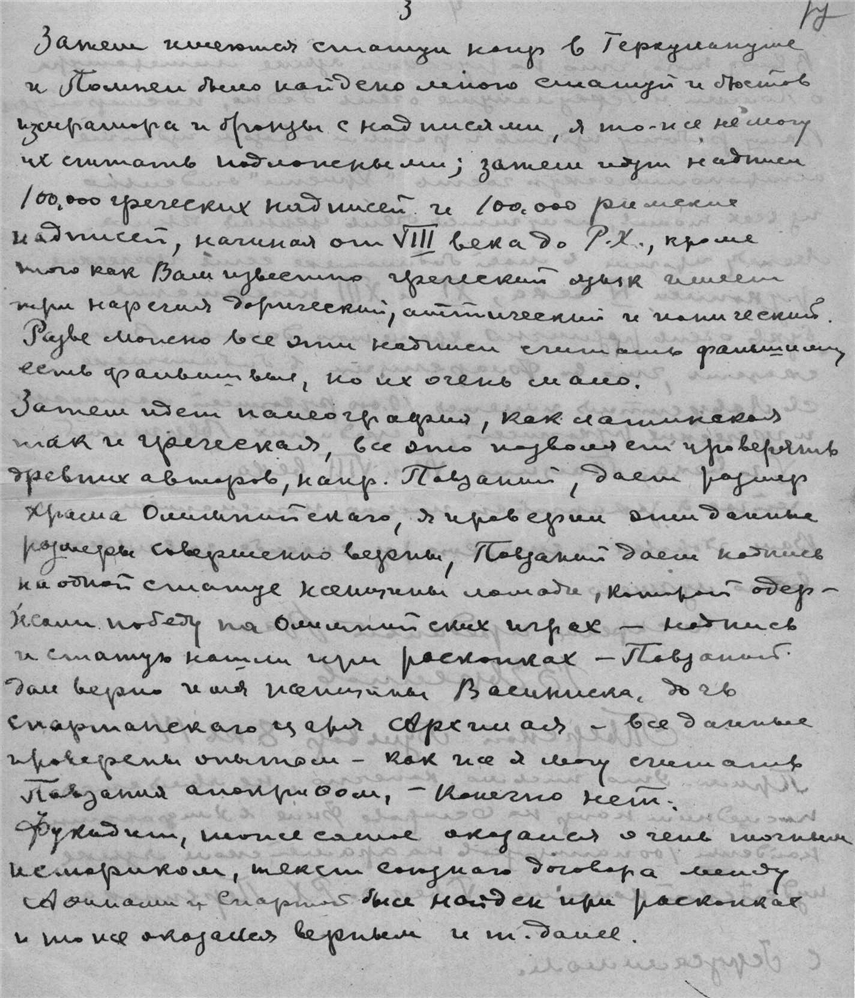 3
Затем имеются статуи напр в Геркулануме
и Помпеи было найдено много статуй и бюстов
из мрамора и бронзы с надписями, я то-же не могу
их считать подложными; затем идут надписи
100.000 греческих надписей и 100.000 римские
надписей, начиная от VIII века до Р.Х., кроме
того как Вам известно греческий язык имеет
три наречия дорический, аттический и ионический.
Разве можно все эти надписи считать фальшивыми
есть фальшивыя, но их очень мало.
Затем идет палеография, как латинская
так и греческая, все это позволяет проверять
древних авторов, напр. Павзаний, дает размер
храма Олимпийскаго, я проверил эти данные
размеры совершенно верны, Павзаний дает надпись
на одной статуе женщины лошади, которой одер-
жали победу на Олимпийских играх — надпись
и статую нашли при раскопках — Павзаний
дал верно имя женщины Василиска, дочь
спартанскаго царя Архилая — все данные
проверены опытом — как же я могу считать
Павзания апокрифом, — конечно нет.
Фукидит, тоже самое оказался очень точным
историком, текст союзного договора между
Афинами и Спартой был найден при раскопках
и то же оказался верным и т. далее.